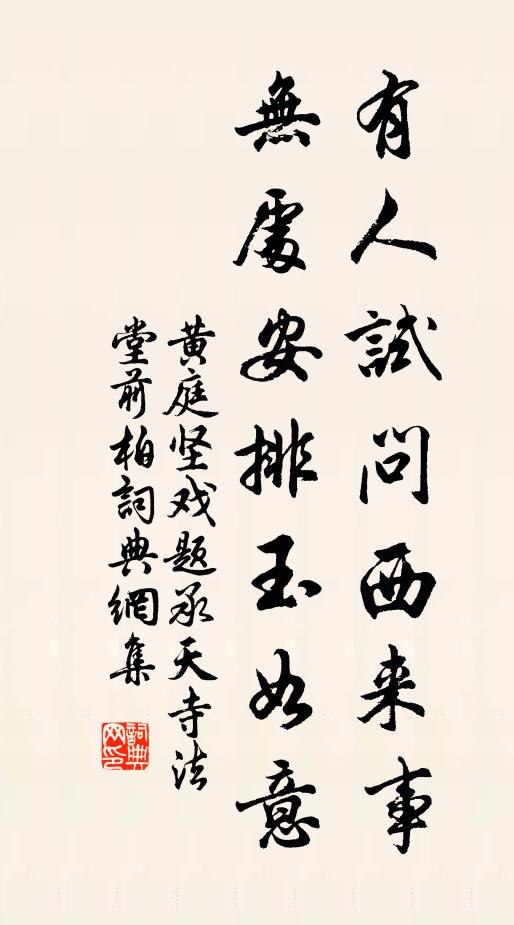 有人試問西来事
無處安排玉如意
黄庭坚戏题承天寺法
堂前柏詞典網集
詞典網印